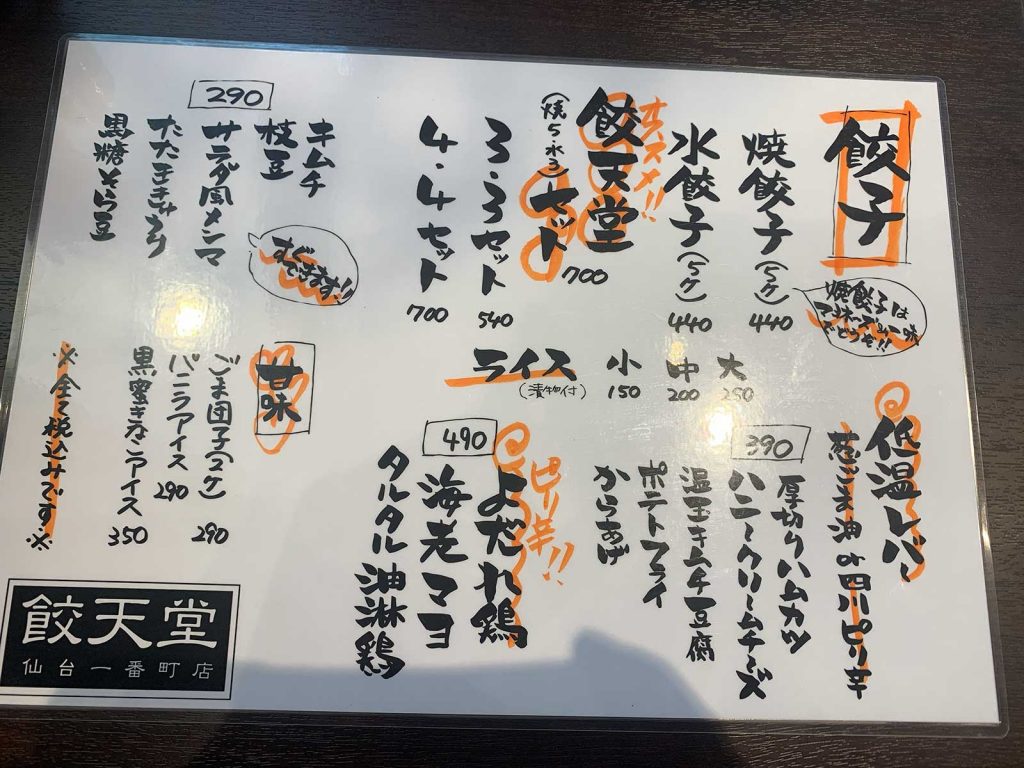 餃子
焼餃子(5ケ) 440
水餃子(5ケ) 440
オススメ!!
餃天堂セット 700
(焼5・水3)
3・3セット 540
4・4セット 700
焼餃子は
一味
どうぞ!!
290
キムチ
枝豆
サラダ風メンマ
たたききゅうり
黒糖そら豆
すぐ
できます!!
ライス
(漬物付)
小 150
中 200
大 250
低温レバー
ごま油 or 四川ピリ辛
390
厚切りハムカツ
ハニークリームチーズ
温玉キムチ豆腐
ポテトフライ
からあげ
490
ピリ辛!!
よだれ鶏
海老マヨ
タルタル油淋鶏
甘味
ごま団子(2ケ) 290
バニラアイス 290
黒蜜きなこアイス 350
※全て税込みです※
餃天堂
仙台一番町店